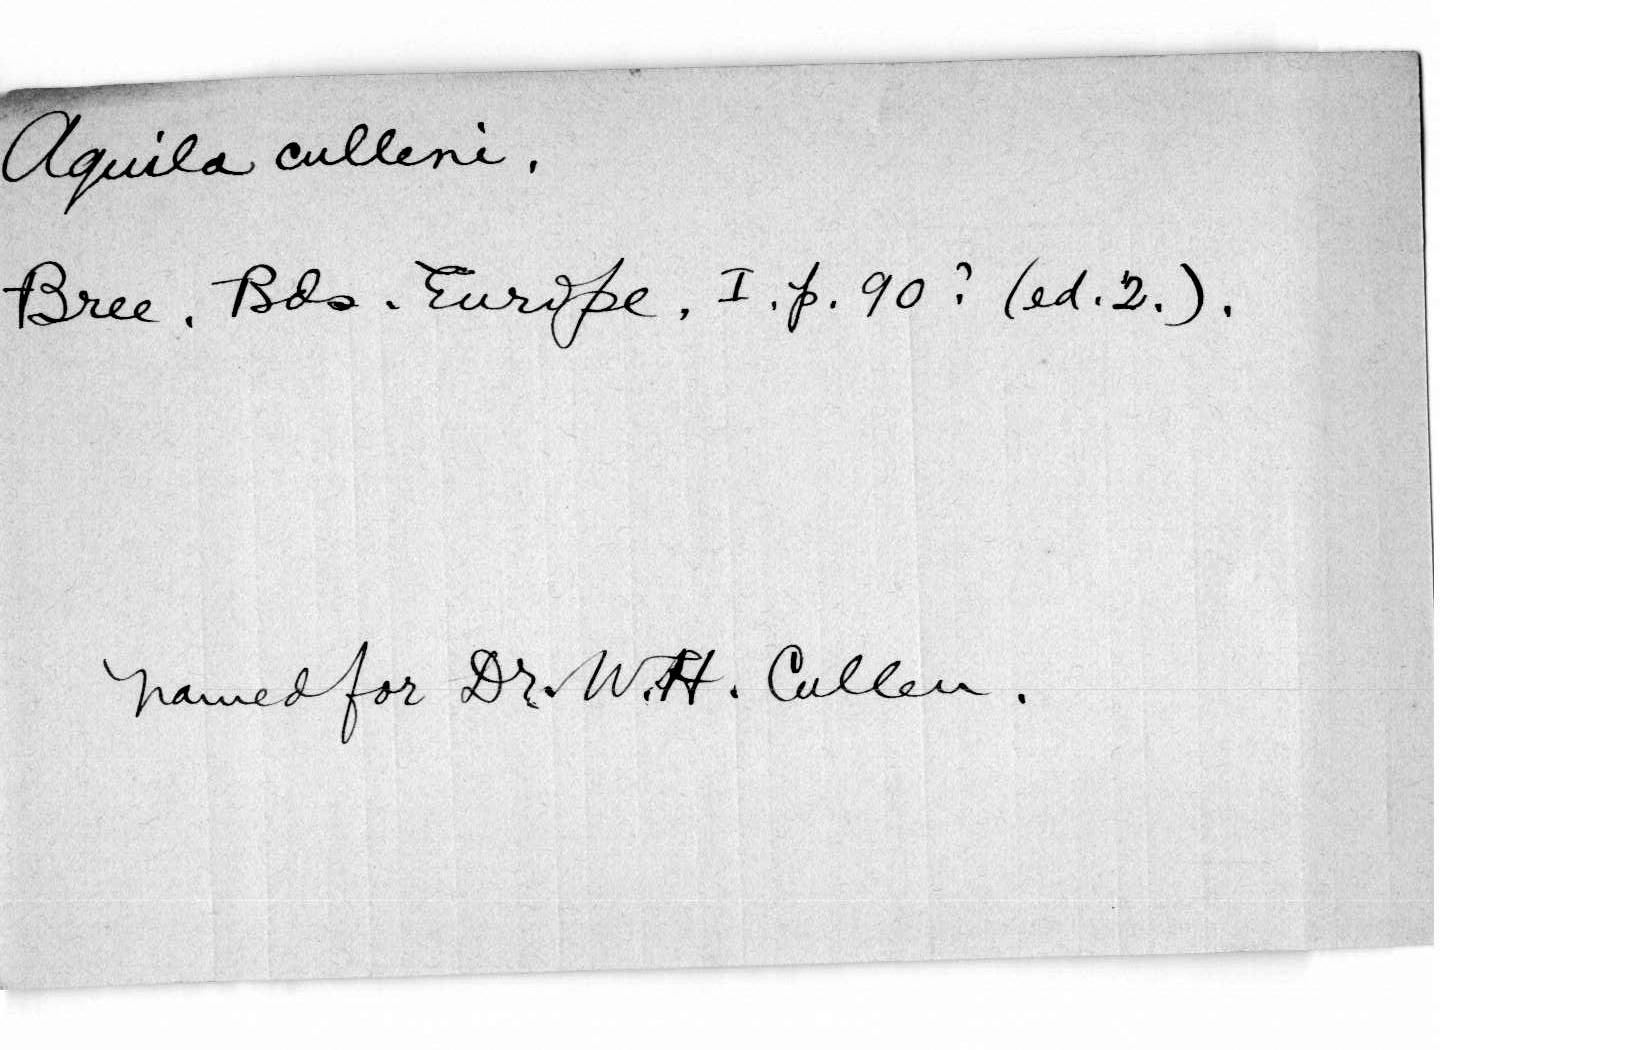 Aquila culleni.
Bree. Bds. Europe, I. p. 90? (ed. 2.).
named for Dr. W.H. Cullen.